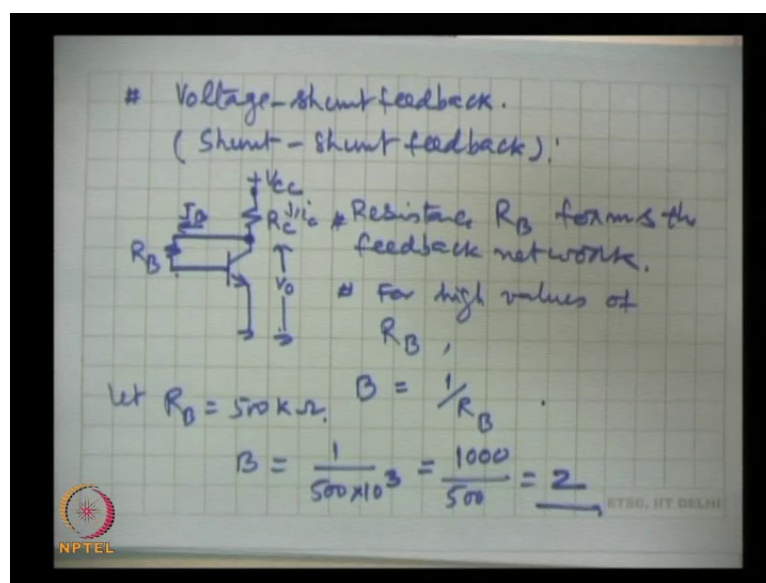 # Voltage-shunt feedback.
( Shunt - Shunt feedback).
+Vcc
IB RC ic # Resistance RB forms th
RB feedback network.
Vo # For high values of
RB ,
Let RB = 500 K Ω. B = 1/RB .
B = 1/500×10³ = 1000/500 = 2
ETSC, IIT DELHI
NPTEL